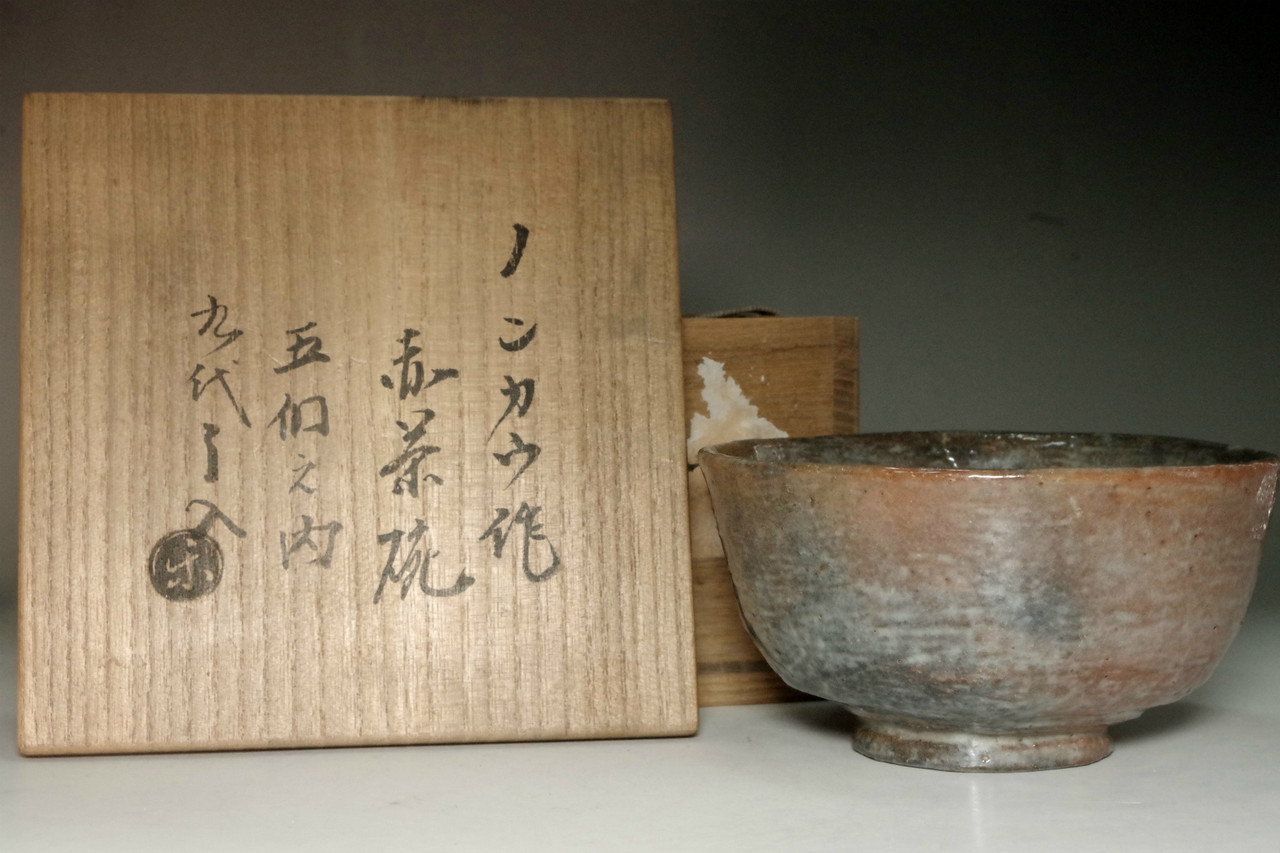 ノンカウ作
赤茶碗
五個之内
九代了入
樂